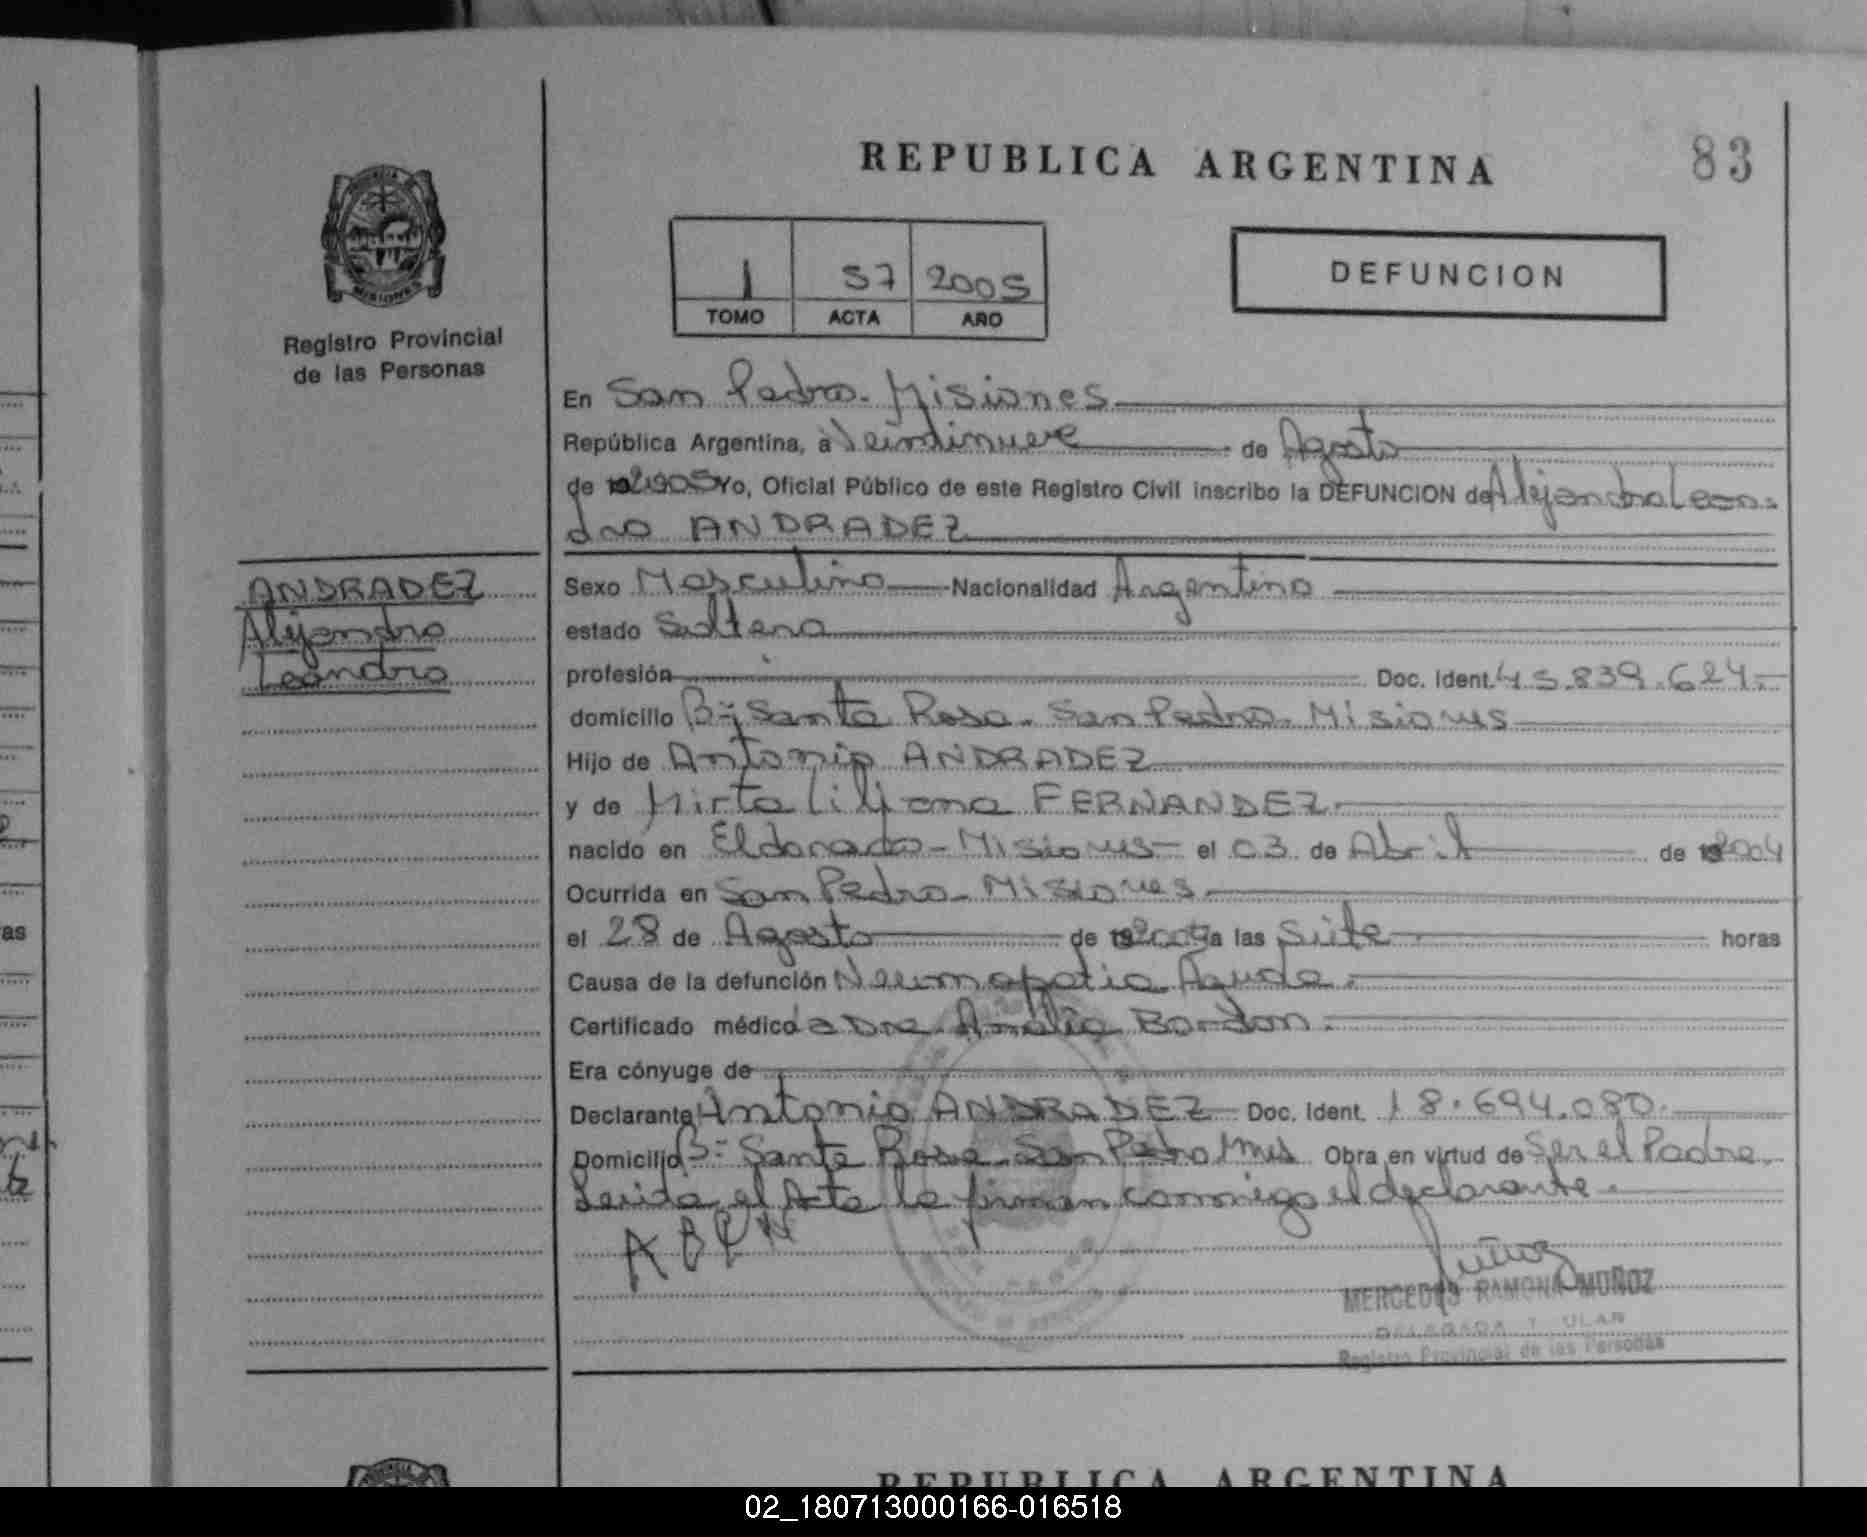 REPUBLICA ARGENTINA
83
PROVINCIA DE
MISIONES
Registro Provincial
de las Personas
1 57 2005
TOMO ACTA AÑO
DEFUNCION
En San Pedro - Misiones
República Argentina, a Veintinueve de Agosto
de 2005 Yo, Oficial Público de este Registro Civil inscribo la DEFUNCION de Alejandro Lean-
dro ANDRADEZ
ANDRADEZ
Alejandro
Leandro
Sexo Masculino Nacionalidad Argentino
estado Soltero
profesión Doc. Ident. 45.839.624.-
domicilio Bº Santa Rosa - San Pedro - Misiones
Hijo de Antonio ANDRADEZ
y de Mirta Liliana FERNANDEZ
nacido en Eldorado - Misiones el 03 de Abril de 2004
Ocurrida en San Pedro - Misiones
el 28 de Agosto de 2005 a las Siete horas
Causa de la defunción Neumopatia Aguda.
Certificado médico Dra. Amalia Bordon.
Era cónyuge de
Declarante Antonio ANDRADEZ Doc. Ident. 18.694.080.
Domicilio Bº Santa Rosa - San Pedro Mnes Obra en virtud de Ser el Padre.
Leida el Acta la firman conmigo el declarante.
MERCEDES RAMONA MUÑOZ
Registro Provincial de las Personas
REPUBLICA ARGENTINA
02_180713000166-016518